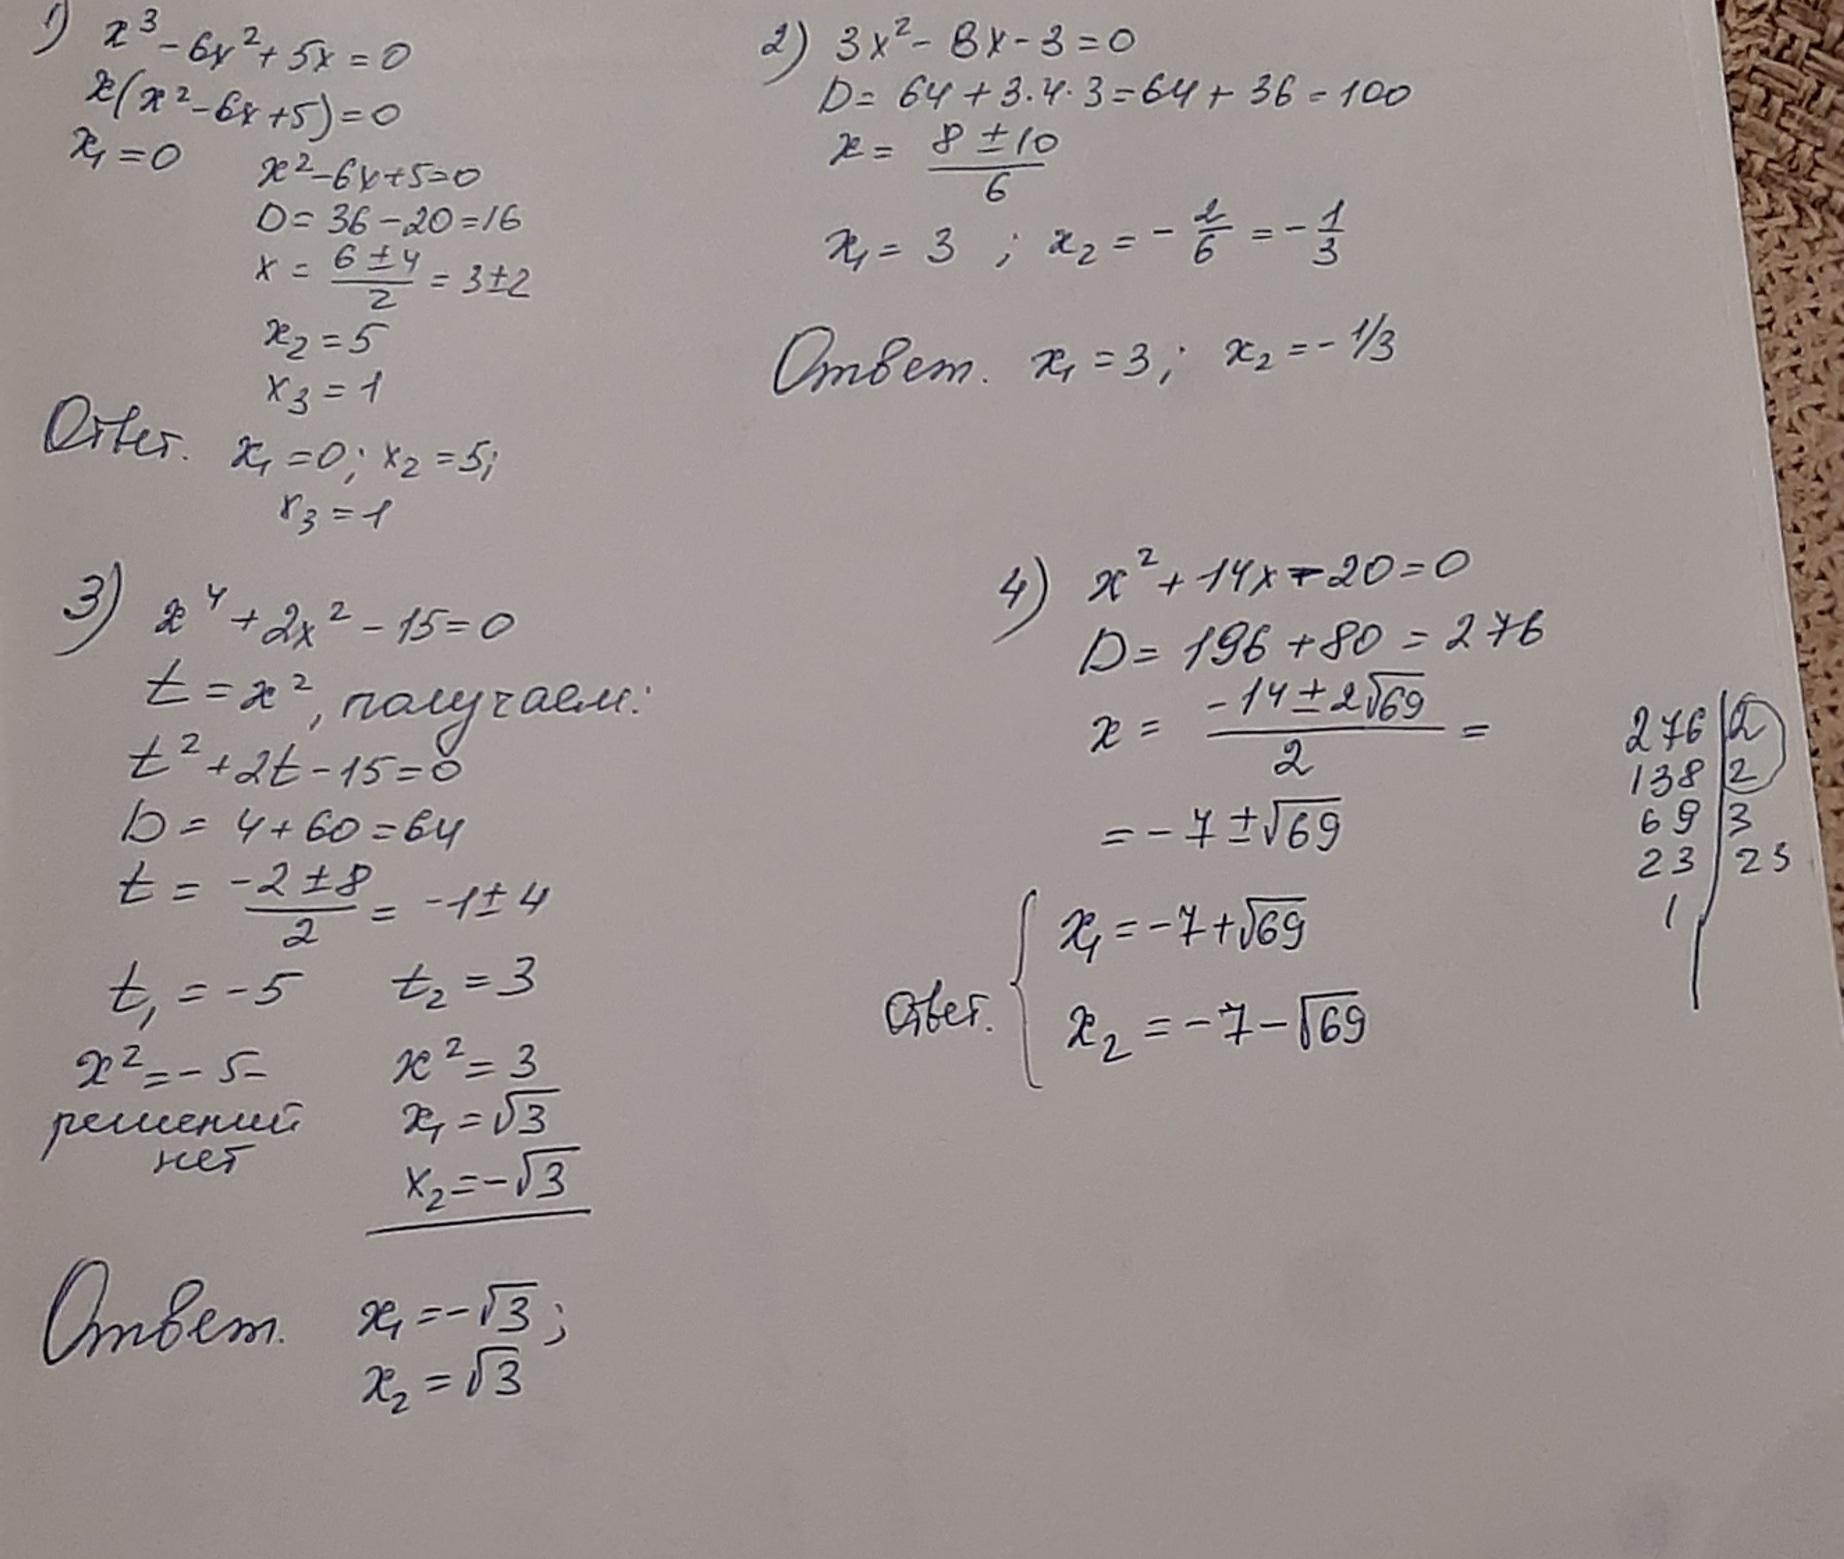 1) x³ - 6x² + 5x = 0
x(x² - 6x + 5) = 0
x₁ = 0
x² - 6x + 5 = 0
D = 36 - 20 = 16
x = (6 ± 4)/2 = 3 ± 2
x₂ = 5
x₃ = 1
Ответ. x₁ = 0; x₂ = 5;
x₃ = 1
2) 3x² - 8x - 3 = 0
D = 64 + 3·4·3 = 64 + 36 = 100
x = (8 ± 10)/6
x₁ = 3 ; x₂ = -2/6 = -1/3
Ответ. x₁ = 3; x₂ = -1/3
3) x⁴ + 2x² - 15 = 0
t = x², получаем:
t² + 2t - 15 = 0
D = 4 + 60 = 64
t = (-2 ± 8)/2 = -1 ± 4
t₁ = -5 t₂ = 3
x² = -5 -
решений
нет
x² = 3
x₁ = √3
x₂ = -√3
Ответ. x₁ = -√3;
x₂ = √3
4) x² + 14x - 20 = 0
D = 196 + 80 = 276
x = (-14 ± 2√69)/2 =
= -7 ± √69
Ответ. { x₁ = -7 + √69
x₂ = -7 - √69
276 | 2
138 | 2
69 | 3
23 | 23
1 |